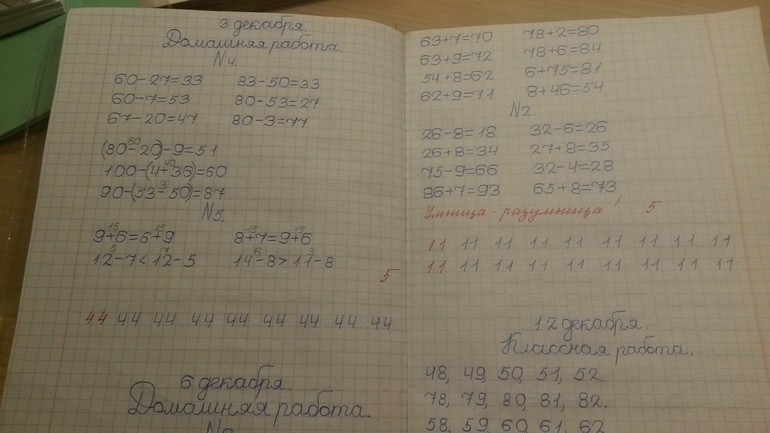 3 декабря.
Домашняя работа.
№4.
60-27=33 83-50=33
60-7=53 80-53=27
67-20=47 80-3=77
50
(80-20)-9=51
40
100-(4+36)=60
3
90-(53-50)=87
№5.
15 15 15 15
9+6=6+9 8+7=9+6
5 7 6 3
12-7<12-5 14-8>11-8
5
44 44 44 44 44 44 44 44 44
6 декабря.
Домашняя работа.
63+7=70 78+2=80
63+9=72 78+6=84
54+8=62 6+75=81
62+9=71 8+46=54
№2.
26-8=18 32-6=26
26+8=34 27+8=35
75-9=66 32-4=28
86+7=93 65+8=73
Умница-разумница! 5
11 11 11 11 11 11 11 11 11
11 11 11 11 11 11 11 11 11
12 декабря.
Классная работа.
48, 49, 50, 51, 52.
78, 79, 80, 81, 82.
58, 59, 60, 61, 62